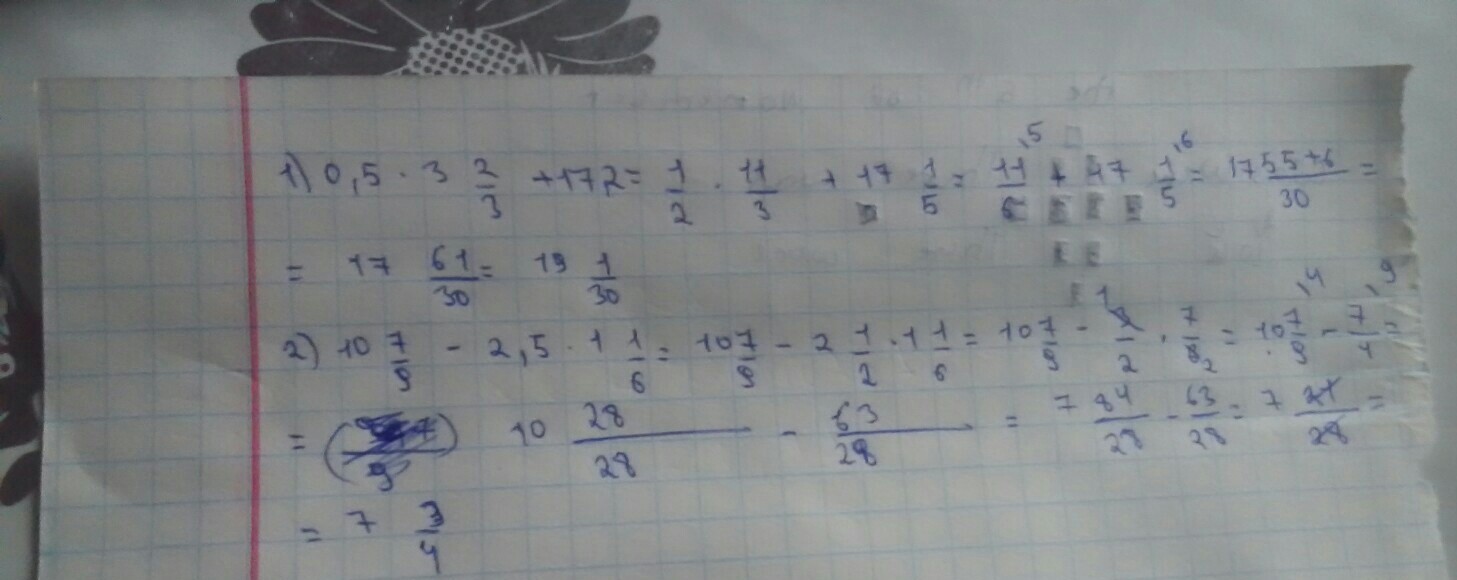 1) 0,5 · 3 2/3 + 17 2 = 1/2 · 11/3 + 17 1/5 = 11/6 ,5 + 17 1/5 ,6 = 17 55+6/30 =
= 17 61/30 = 19 1/30
2) 10 7/9 - 2,5 · 1 1/6 = 10 7/9 - 2 1/2 · 1 1/6 = 10 7/9 - 1/2 · 7/2 = 10 7/9 ,4 - 7/4 ,9 =
= 10 28/28 - 63/28 = 7 84/28 - 63/28 = 7 21/28 =
= 7 3/4